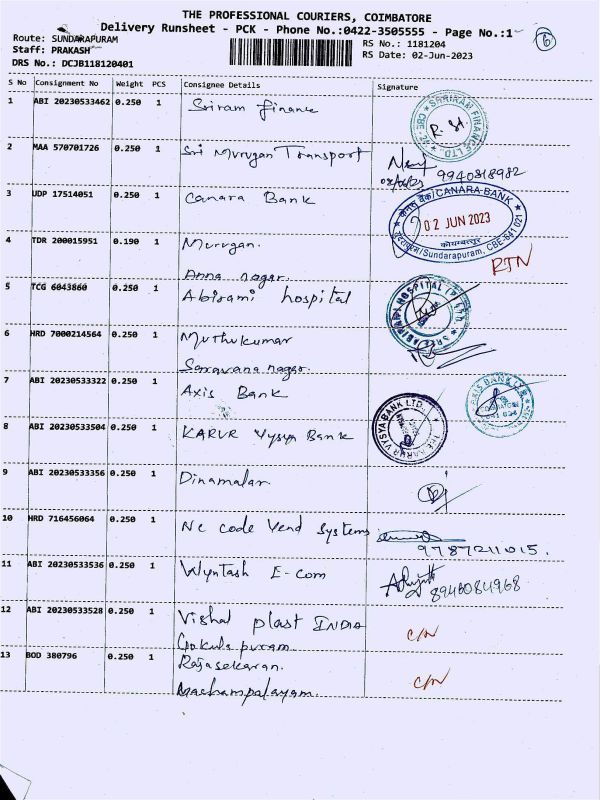 THE PROFESSIONAL COURIERS, COIMBATORE
Delivery Runsheet - PCK - Phone No.:0422-3505555 - Page No.:1
6
Route: SUNDARAPURAM
Staff: PRAKASH
DRS No.: DCJB118120401
RS No.: 1181204
RS Date: 02-Jun-2023
S No Consignment No Weight PCS Consignee Details Signature
1 ABI 20230533462 0.250 1 Sriram finance
R. St.
2 MAA 570701726 0.250 1 Sri Murugan Transport
9940818982
3 UDP 17514051 0.250 1 Canara Bank
केनरा बैंक/CANARA BANK
02 JUN 2023
कोयम्बत्तूर
Sundarapuram, CBE-641 021
4 TDR 200015951 0.190 1 Murugan.
Anna nagar.
RTN
5 TCG 6043860 0.250 1 Abirami hospital
6 HRD 7000214564 0.250 1 Muthukumar
Saravana nagar.
7 ABI 20230533322 0.250 1 Axis Bank
AXIS BANK LTD
8 ABI 20230533504 0.250 1 KARUR Vysya Bank
THE KARUR VYSYA BANK LTD.
9 ABI 20230533356 0.250 1 Dinamalar
10 HRD 716456064 0.250 1 Nc code Vend Systems
9787211015.
11 ABI 20230533536 0.250 1 Wyntash E-com
8946084968
12 ABI 20230533528 0.250 1 Vishal plast INDIA
Gokula puram.
C/N
13 BOD 380796 0.250 1 Rajasekaran.
Machampalayam.
C/N